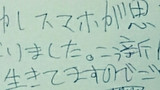 かしスマホが思
りました。ニ新
生きてますのでジ